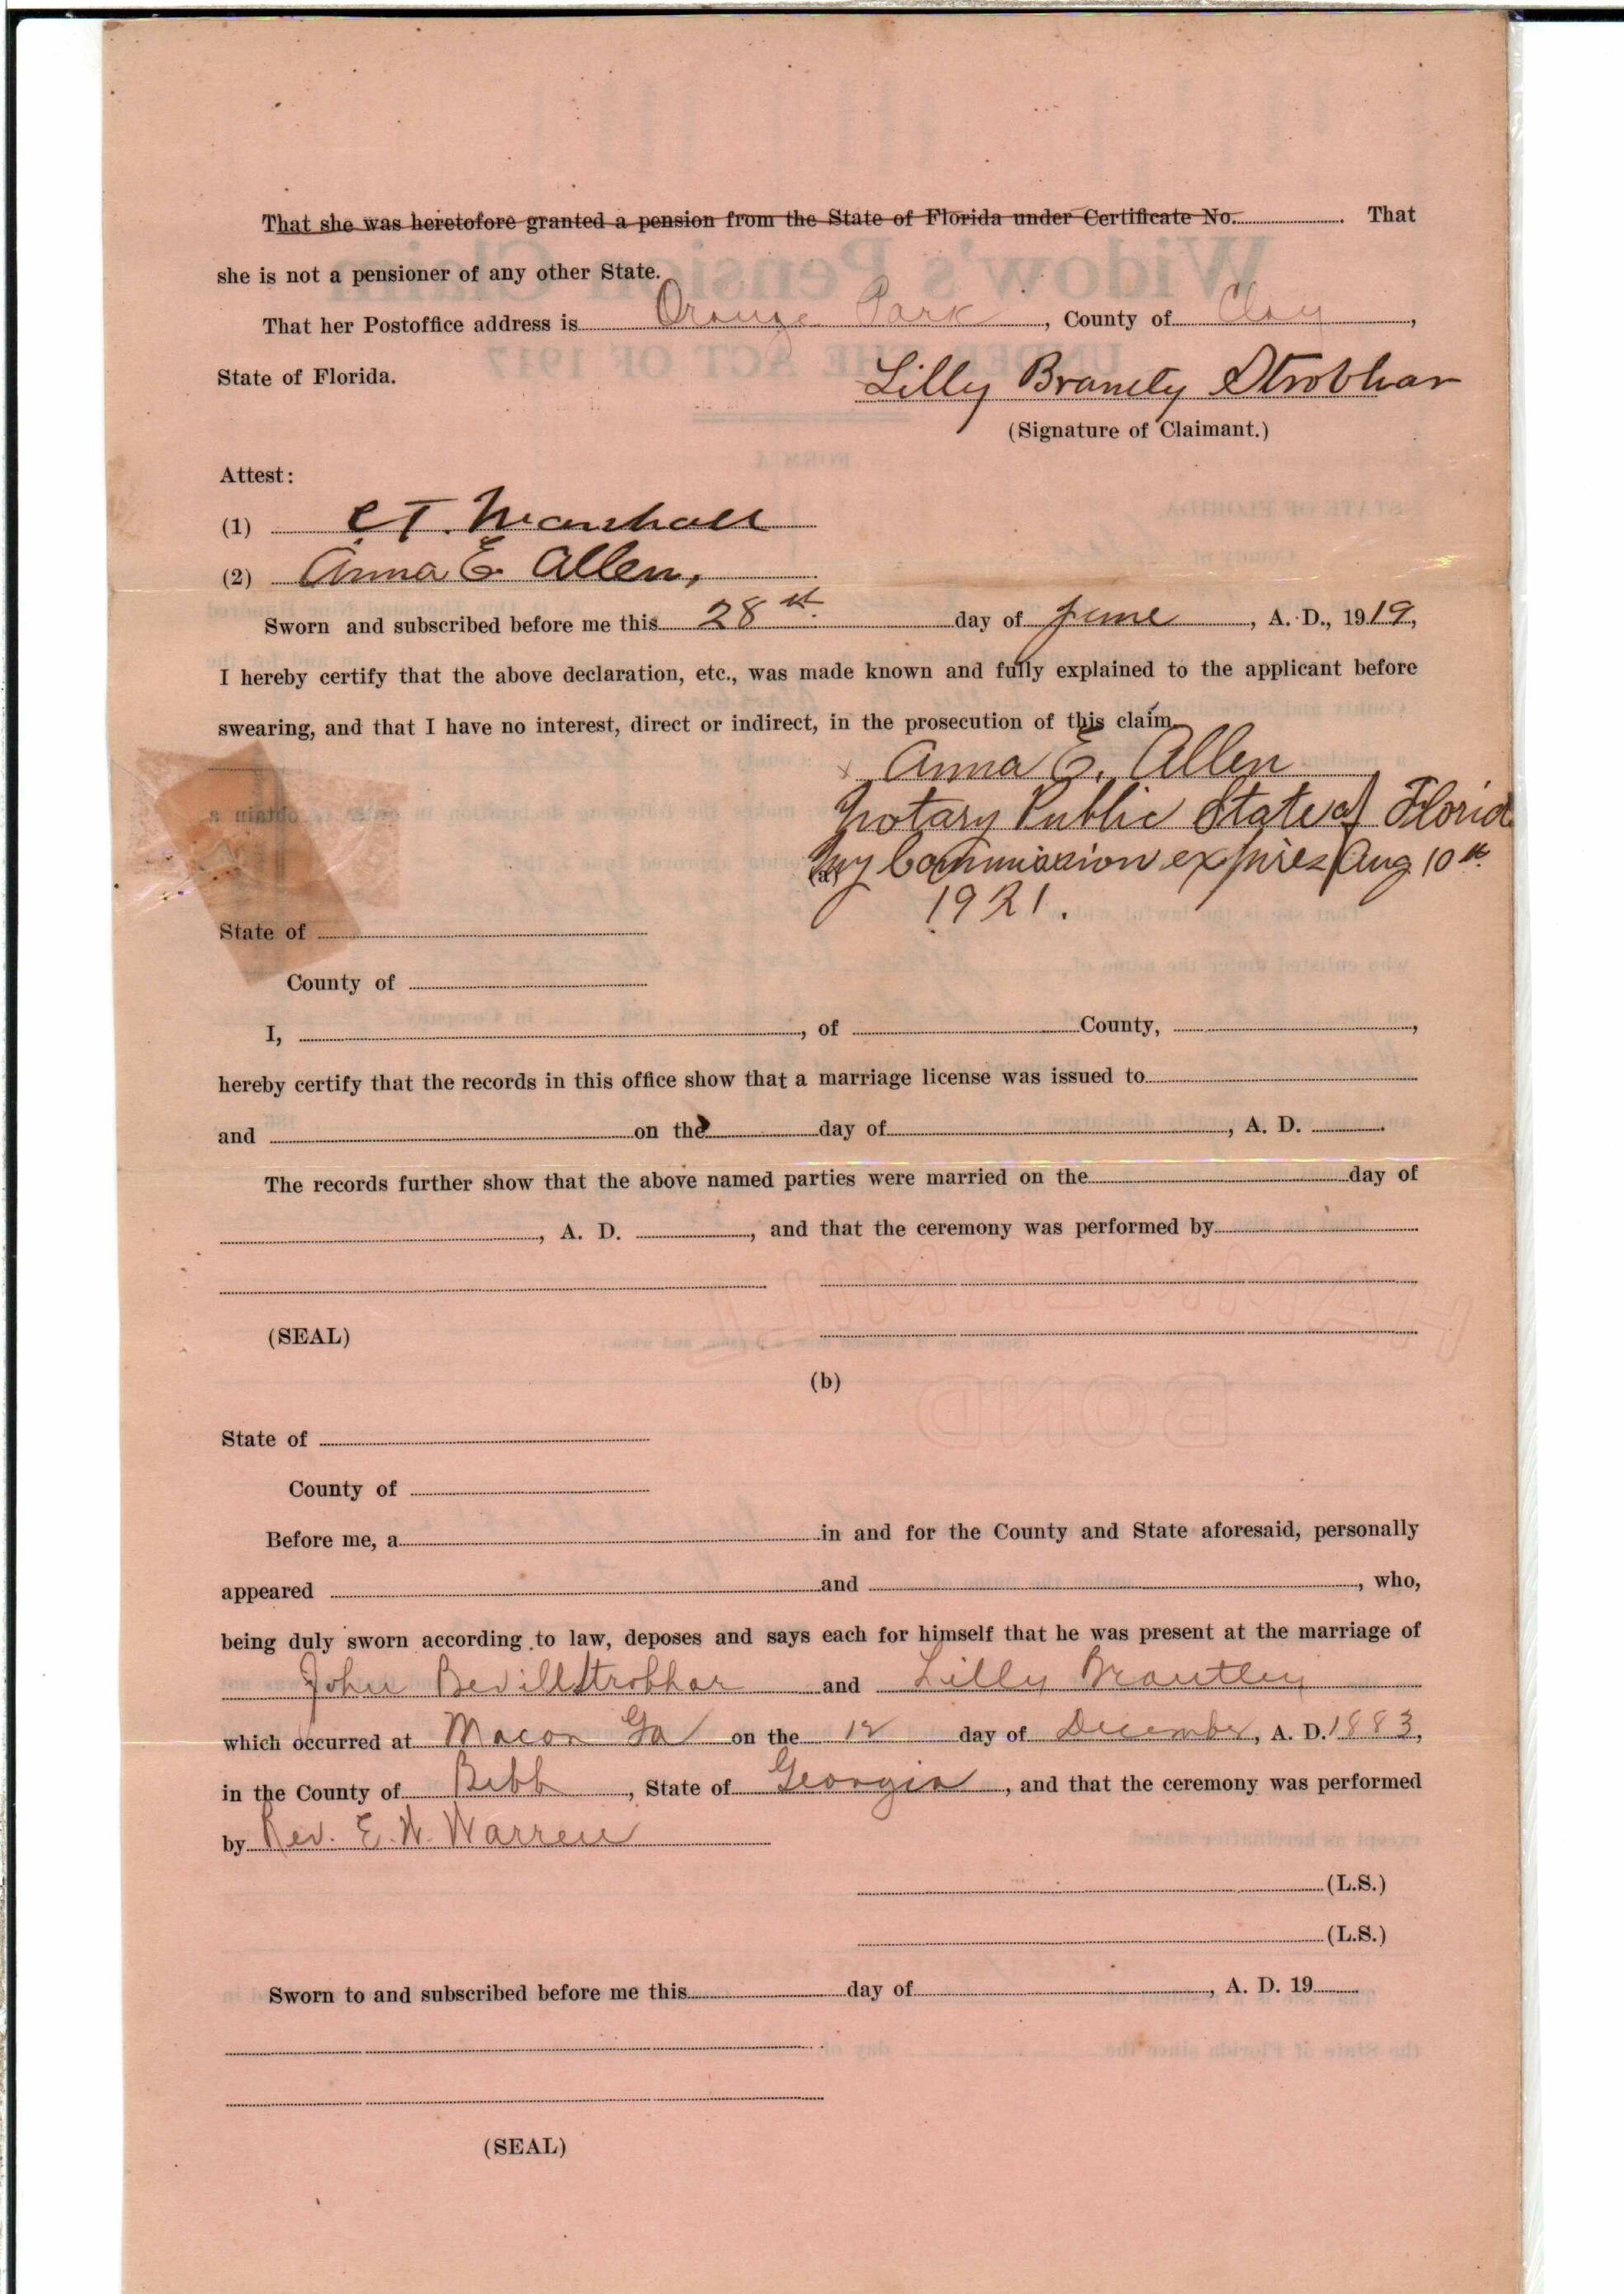 That she was heretofore granted a pension from the State of Florida under Certificate No. . That
she is not a pensioner of any other State.
That her Postoffice address is Orange Park, County of Clay,
State of Florida.
Lilly Brantly Strobhar
(Signature of Claimant.)
Attest:
(1) C T. Marshall
(2) Anna E Allen,
Sworn and subscribed before me this 28th day of June, A. D., 1919,
I hereby certify that the above declaration, etc., was made known and fully explained to the applicant before
swearing, and that I have no interest, direct or indirect, in the prosecution of this claim
x Anna E. Allen
Notary Public State of Florid
(a)
My Commission expires Aug 10th
1921.
State of
County of
I, , of County, ,
hereby certify that the records in this office show that a marriage license was issued to
and on the day of , A. D. .
The records further show that the above named parties were married on the day of
, A. D. , and that the ceremony was performed by
(SEAL)
(b)
State of
County of
Before me, a in and for the County and State aforesaid, personally
appeared and , who,
being duly sworn according to law, deposes and says each for himself that he was present at the marriage of
John Bevill Strobhar and Lilly Brantley
which occurred at Macon Ga on the 12 day of December, A. D. 1883,
in the County of Bibb, State of Georgia, and that the ceremony was performed
by Rev. E. W. Warren
(L.S.)
(L.S.)
Sworn to and subscribed before me this day of , A. D. 19
(SEAL)